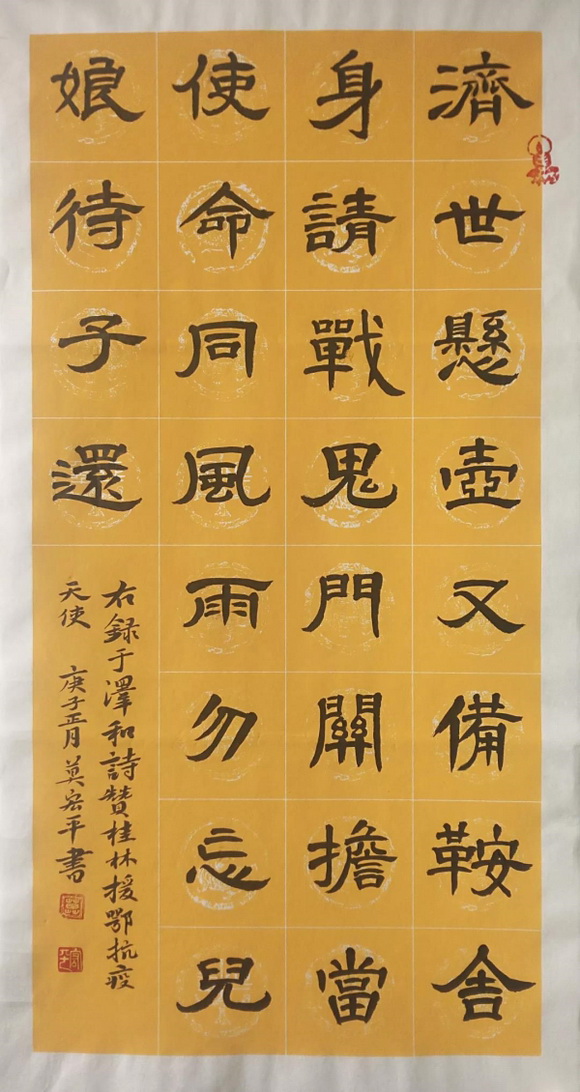 濟世懸壺又備鞍舍
身請戰鬼門關擔當
使命同風雨勿忘兒
娘待子還
右録于澤和詩贊桂林援鄂抗疫
天使 庚子正月莫宏平書